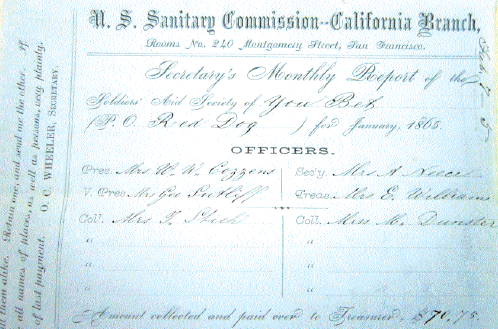 U. S. Sanitary Commission--California Branch,
Rooms No. 240 Montgomery Street, San Francisco.
Secretary's Monthly Report of the
Soldiers' Aid Society of You Bet
(P. O. Red Dog ) for January, 1865.
OFFICERS.
Pres. Mrs W. W. Cozzens Sec'y. Mrs A. Neece
V. Pres. Mrs Geo Sutliff Treas. Mrs E. Williams
Coll. Mrs Coll. Miss M. Dunster
" "
" "
" "
Amount collected and paid over to Treasurer, $70,75.
at them alike. Retain one, and send me the other. If
all names of places, as well as persons, very plainly.
of last payment. O. C. WHEELER, SECRETARY.